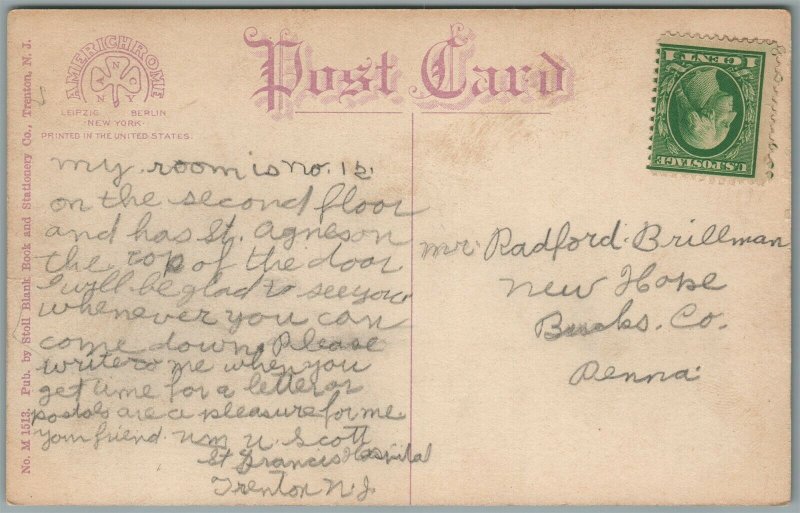 No. M 1513. Pub. by Stoll Blank Book and Stationery Co., Trenton, N. J.
AMERICHROME
A N C
N Y
LEIPZIG BERLIN
NEW YORK
PRINTED IN THE UNITED STATES.
Post Card
1 CENT 1
U.S. POSTAGE
my room is no. 12
on the second floor
and has St. Agnes on
the top of the door
I will be glad to see you
whenever you can
come down. Please
write to me when you
get time for a letter or
postals are a pleasure for me
your friend. Wm U. Scott
St Francis Hospital
Trenton N. J.
Mr. Radford. Brillman
New Hope
Bucks. Co.
Penna.